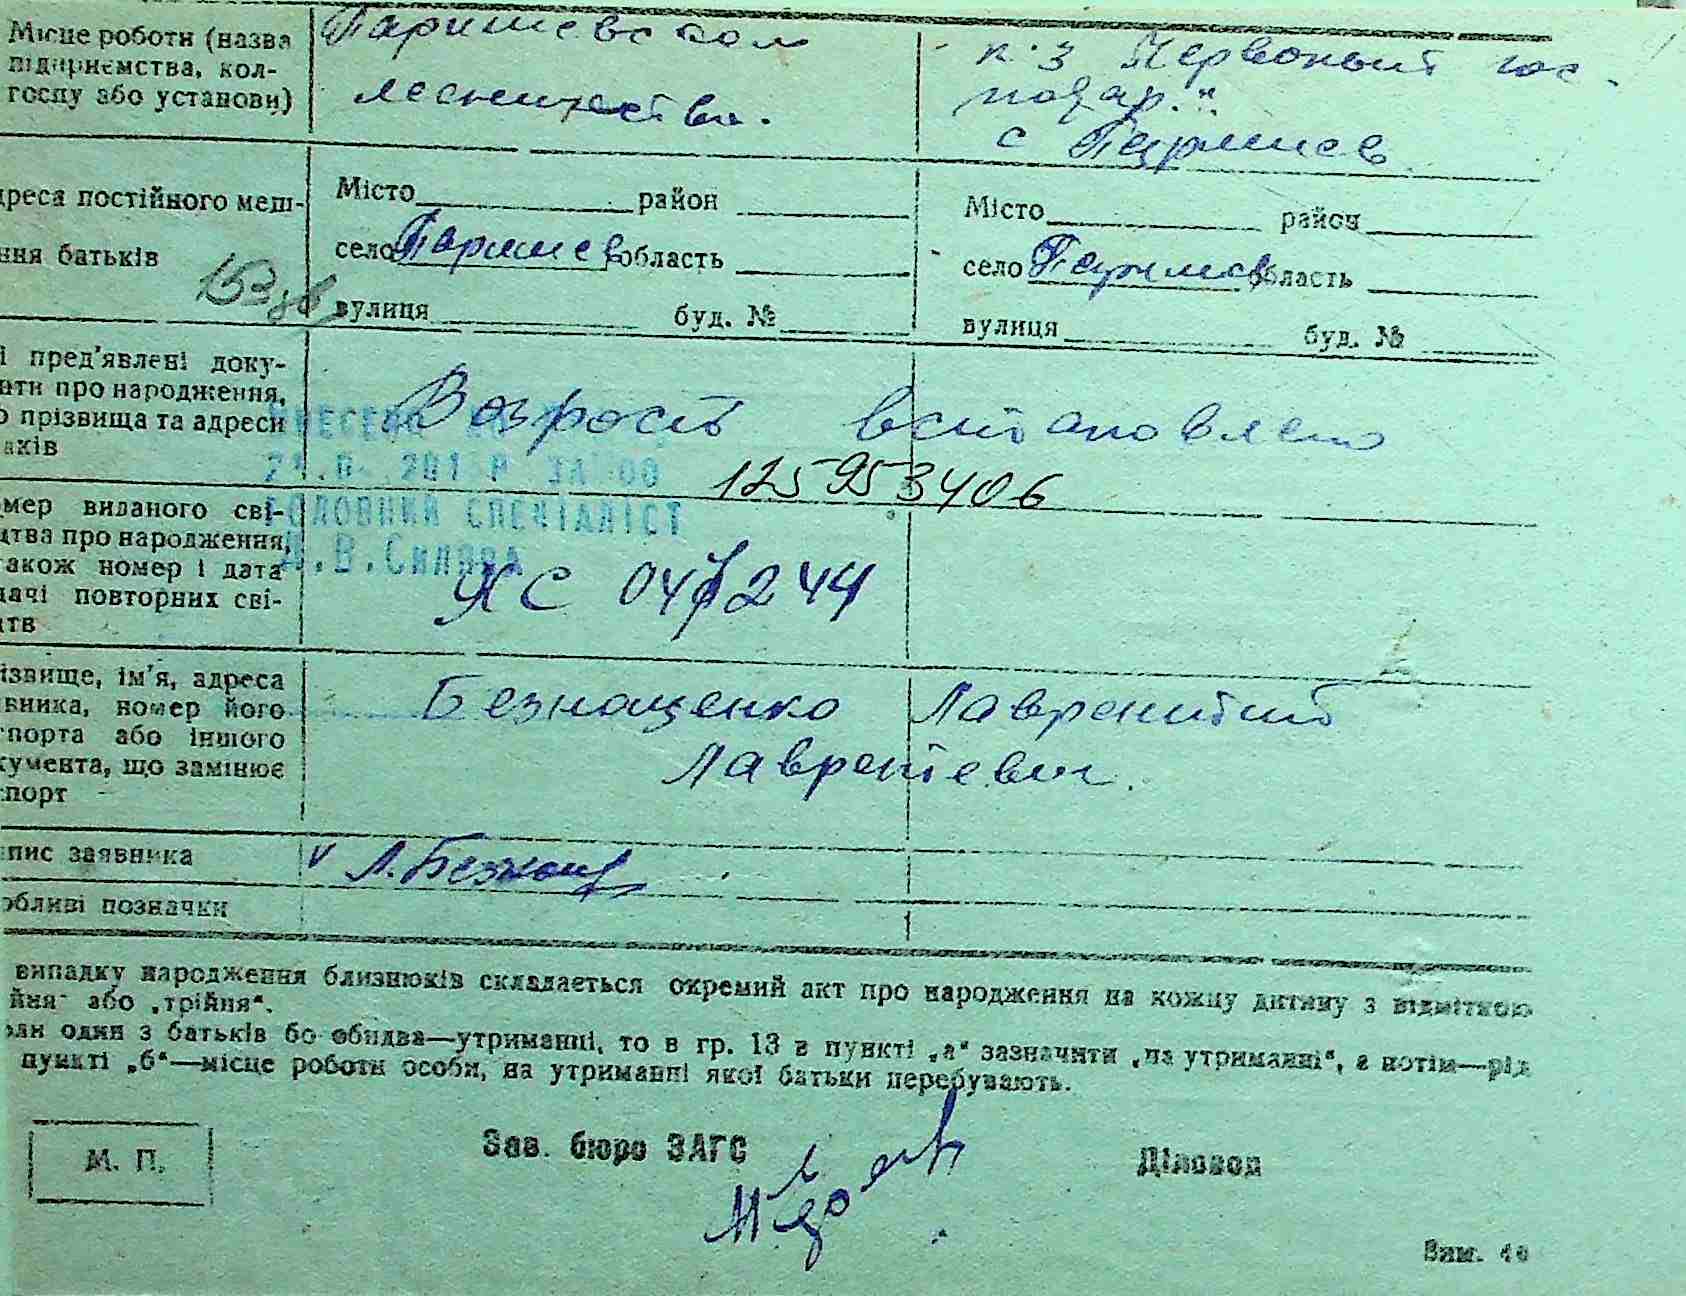 Місце роботи (назва
підприємства, кол-
госпу або установи)
Паришевском
лесничестви.
к-з Червоный гос-
подар."
с Паришев
дреса постійного меш-
ння батьків
Місто район
село Паришев область
вулиця буд. №
Місто район
село Паришев область
вулиця буд. №
і пред'явлені доку-
нти про народження,
о прізвища та адреси
аків
Возрость встановлено
125953406
ГОЛОВНИЙ СПЕЦІАЛІСТ
мер виданого сві-
цтва про народження,
також номер і дата
дачі повторних сві-
цтв
ЯС 047244
ізвище, ім'я, адреса
вника, номер його
спорта або іншого
кумента, що замінює
спорт
Безнощенко Лаврентий
Лаврентіевич.
пис заявника
v Л. Безнощ
обливі позначки
випадку народження близнюків складається окремий акт про народження на кожну дитину з відміткою
йня" або „трійня".
оли один з батьків бо обидва—утриманці, то в гр. 13 в пункті „а" зазначити „на утриманні", а потім—рід
пункті „б"—місце роботи особи, на утриманні якої батьки перебувають.
М. П.
Зав. бюро ЗАГС
Діловод
Вим. 40